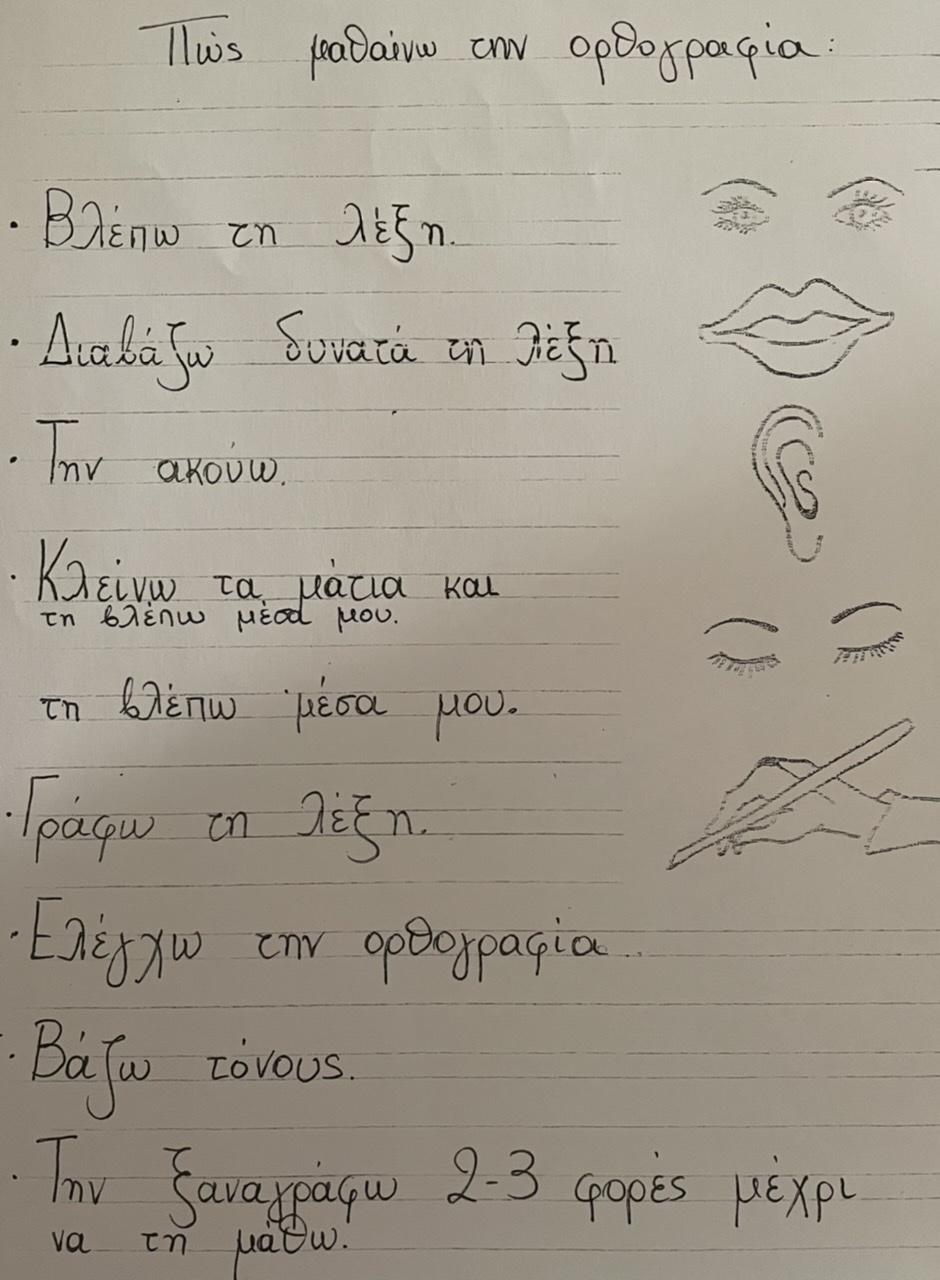 Πώς μαθαίνω την ορθογραφία:
· Βλέπω τη λέξη.
· Διαβάζω δυνατά τη λέξη
· Την ακούω.
· Κλείνω τα μάτια και
τη βλέπω μέσα μου.
τη βλέπω μέσα μου.
· Γράφω τη λέξη.
· Ελέγχω την ορθογραφία..
· Βάζω τόνους.
· Την ξαναγράφω 2-3 φορές μέχρι
να τη μάθω.